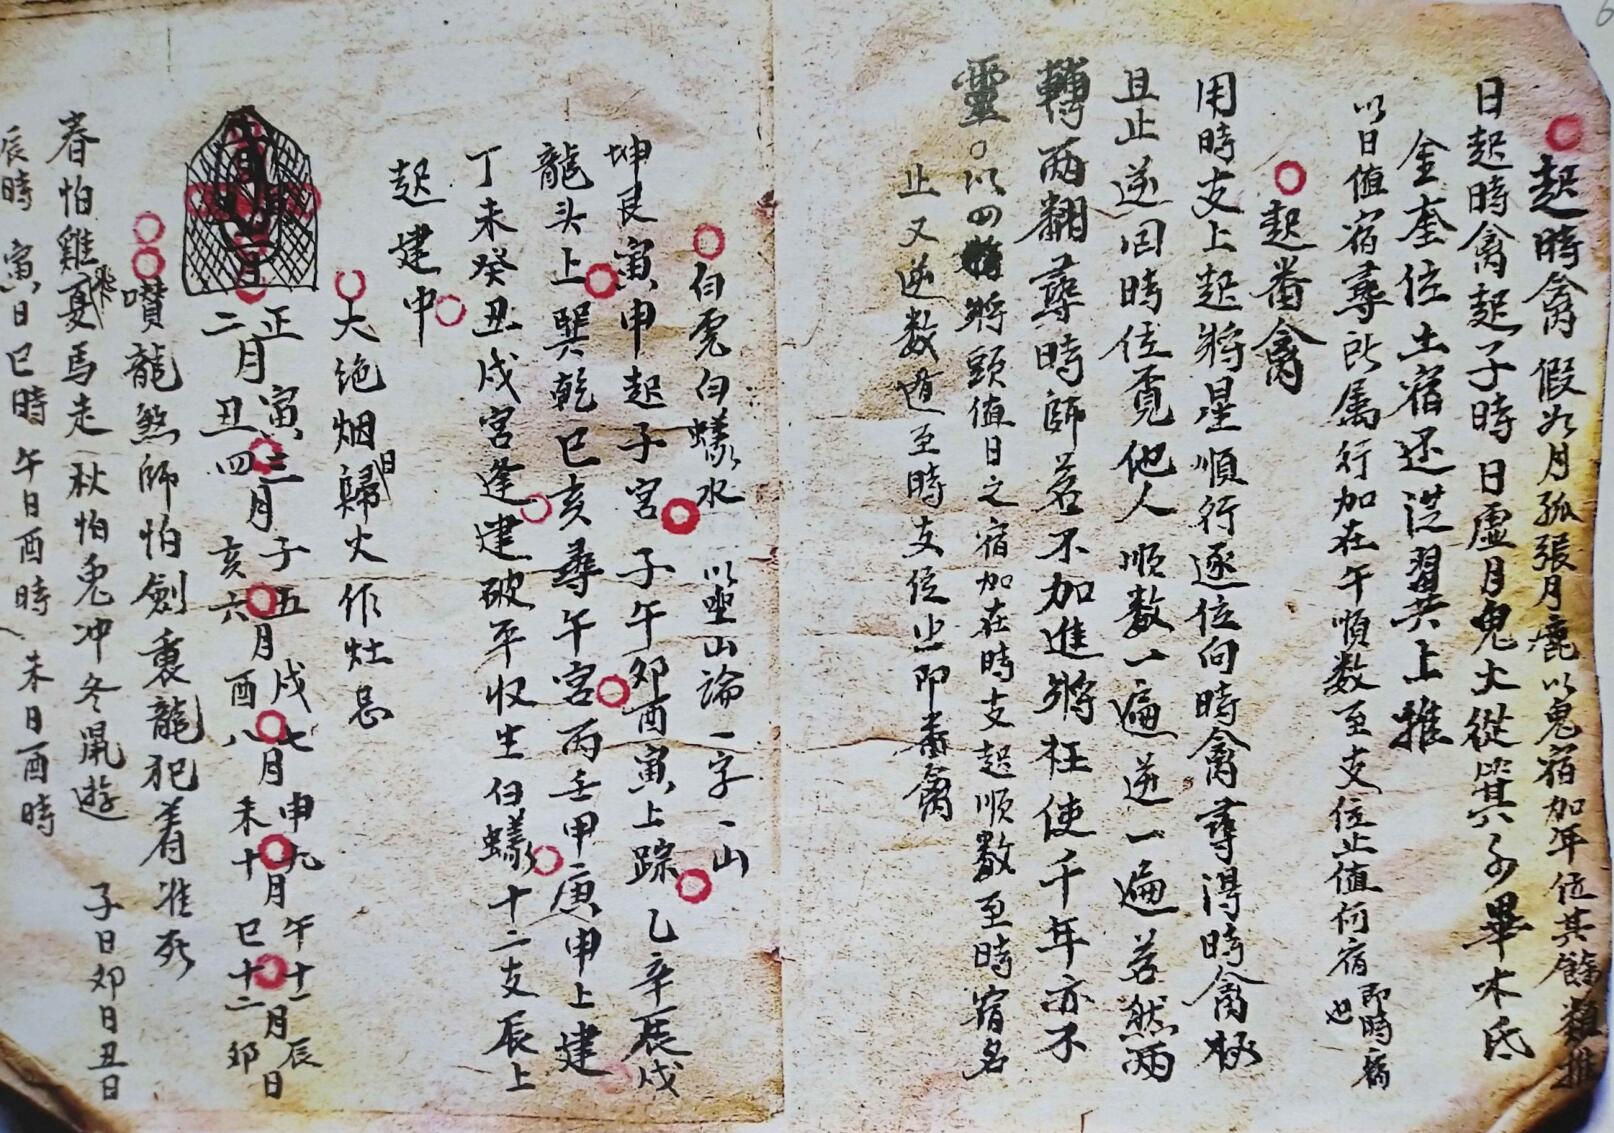 起時禽 假如月孤張月鹿以鬼宿加年位其餘類推
日起時禽起子時日虛月鬼火從箕水畢木氐
金奎位土宿还從翼上推
以日值宿尋所属行加在午順数至支位止值何宿即時禽也
起番禽
用時支上起將星順行逐位向時禽尋得時禽極
且止逆回時位覓他人順数一遍逆一遍若然兩
轉兩翻尋時師若不加進將枉使千年亦不
靈。以四將頭值日之宿加在時支起順數至時宿名
止又逆数道至時支位止即番禽
白虎白蟻水 以坐山論一字一山
坤艮寅申起子宮 子午卯酉寅上踪 乙辛辰戌
龍头上 巽乾巳亥尋午宮 丙壬甲庚申上建
丁未癸丑戌宮逢 建破平收生白蟻 十二支辰上
起建申
大绝烟歸火作灶忌日
正月寅三月子五月戌七月申九月午十一月辰日
二月丑四亥六酉八未十巳十二卯
嘖龍煞師怕劍裏龍犯着准死
春怕雞飛夏馬走秋怕兎冲冬鼠遊 子日卯日丑日
辰時 寅日巳時 午日酉時 未日酉時